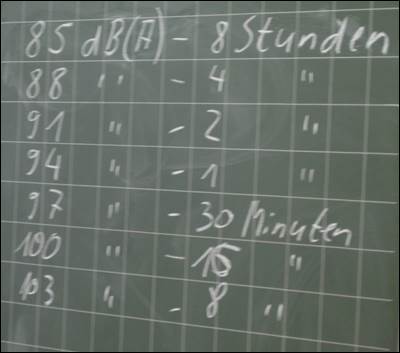 85 dB(A) - 8 Stunden
88 " - 4 "
91 " - 2 "
94 " - 1 "
97 " - 30 Minuten
100 " - 15 "
103 " - 8 "